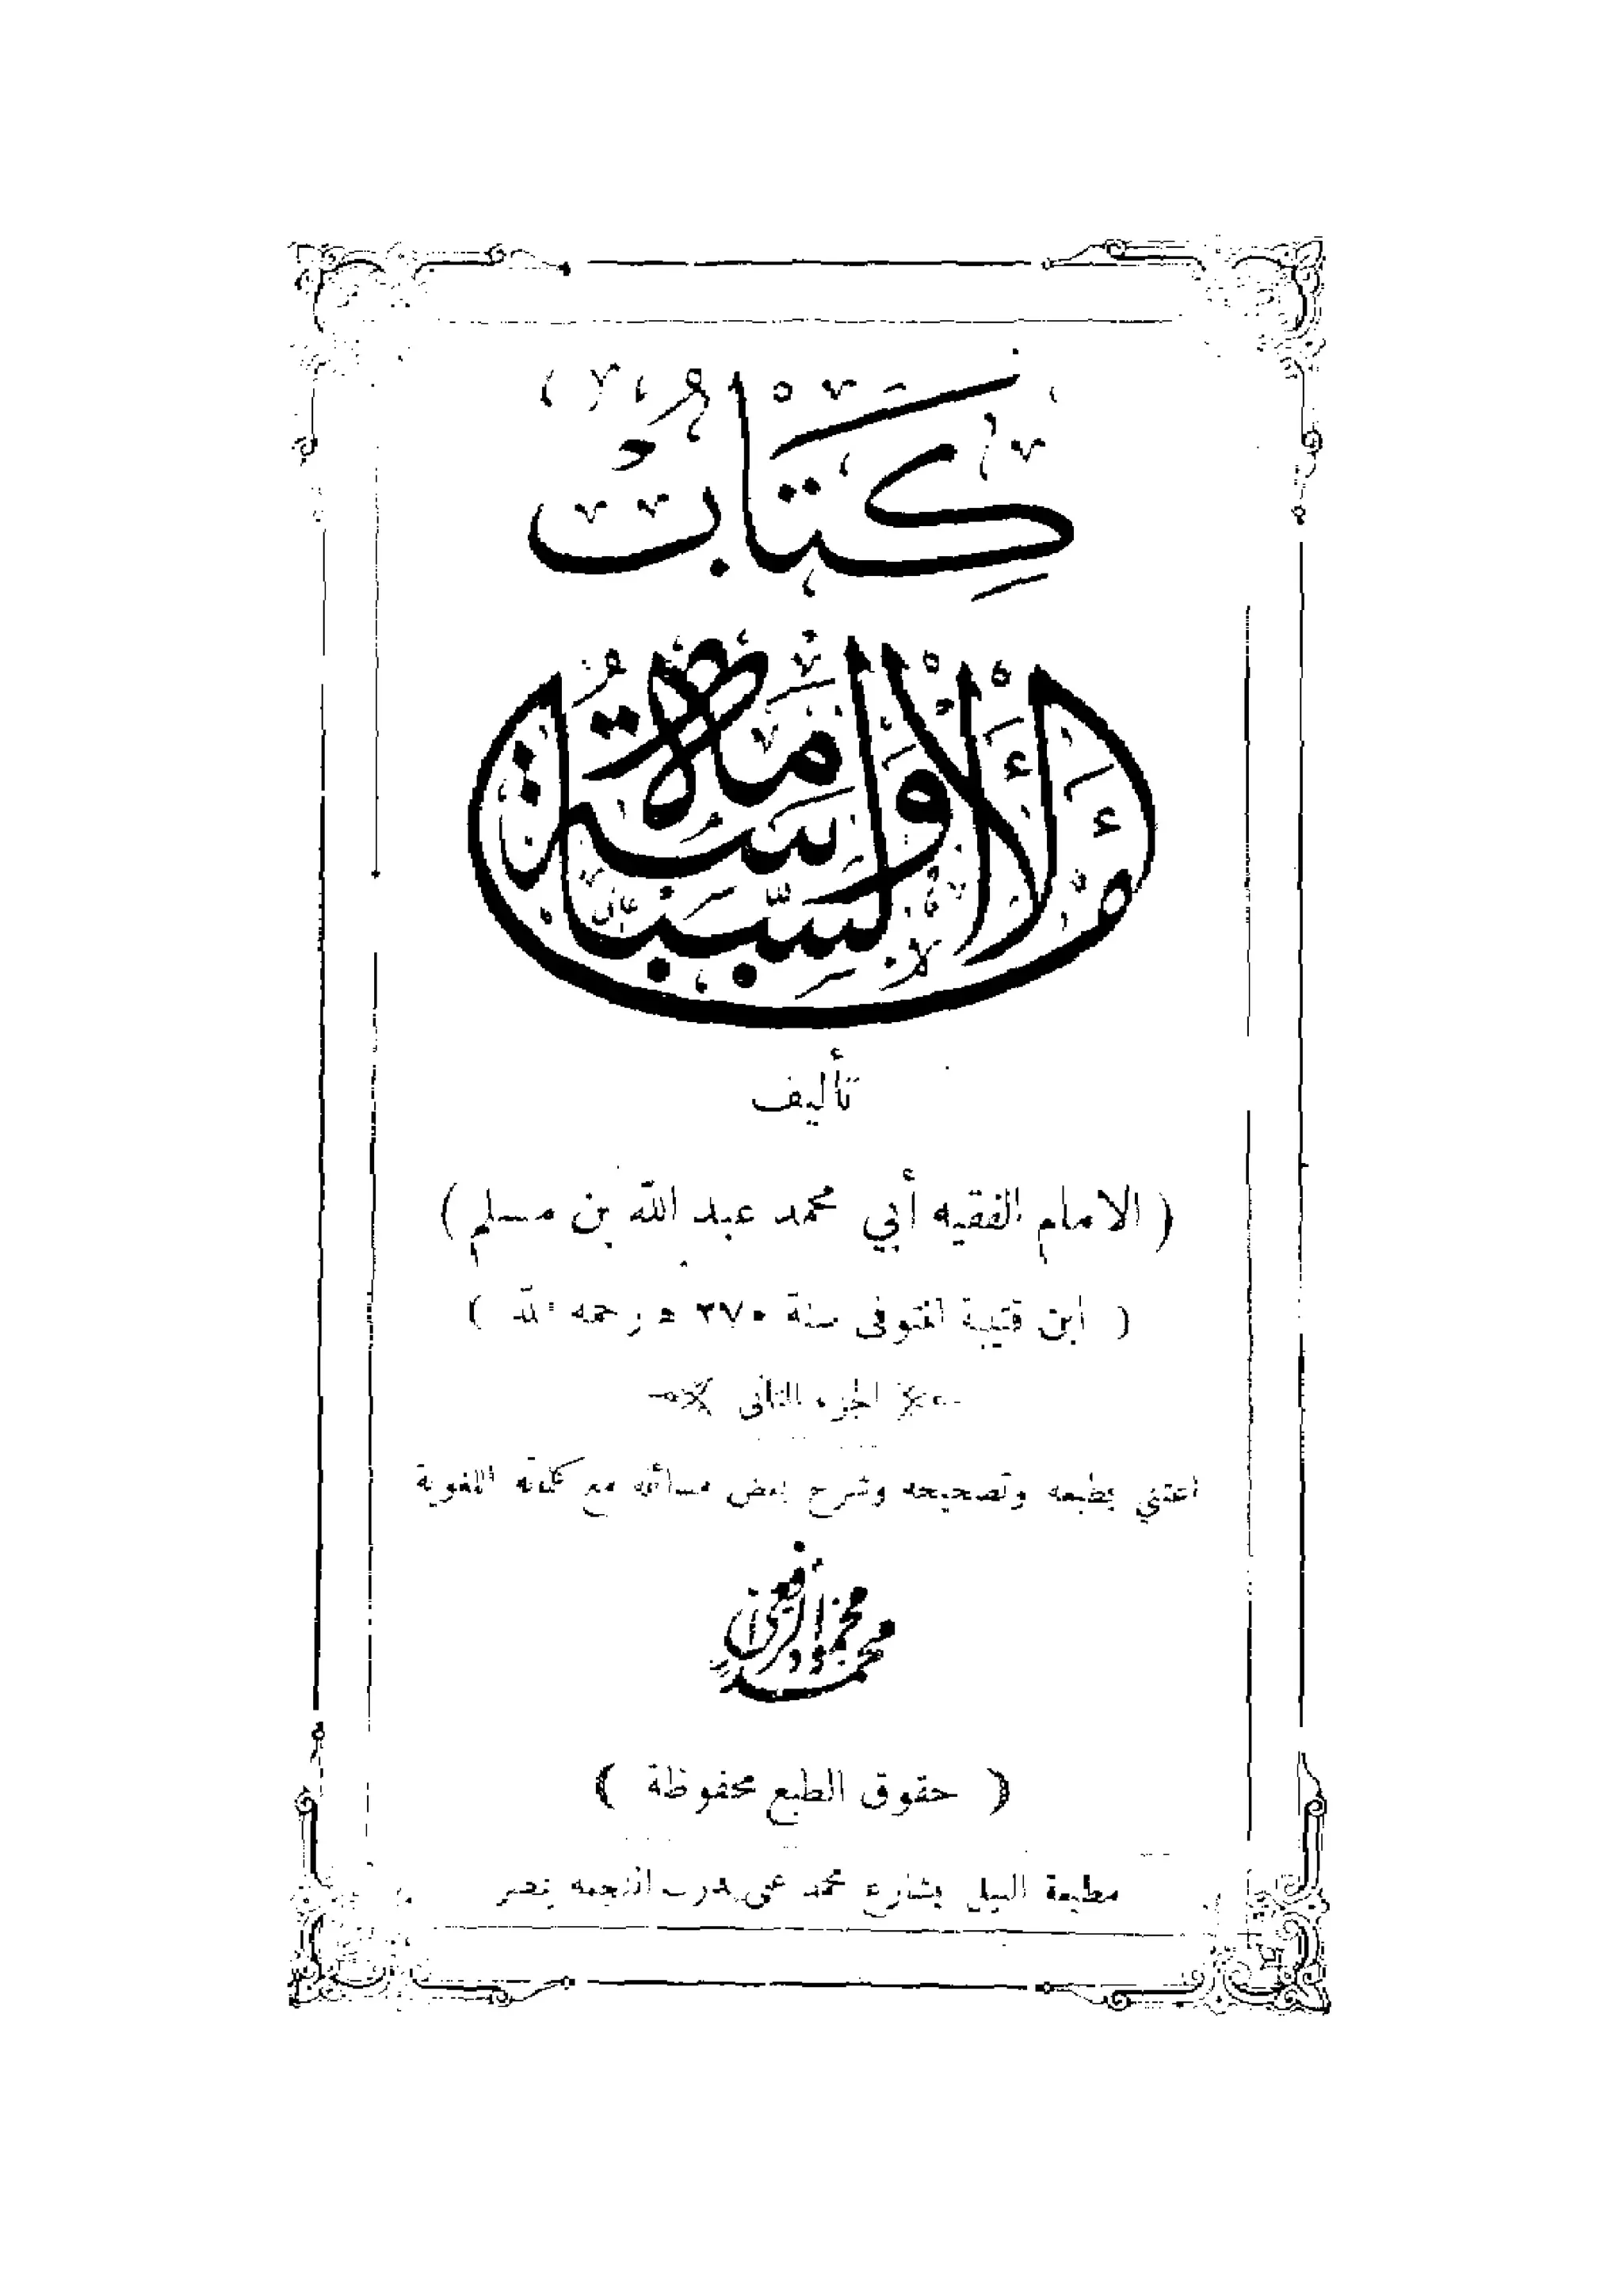 كتاب
الإمامة والسياسة
تأليف
( الامام الفقيه أبي محمد عبد الله بن مسلم )
( ابن قتيبة المتوفى سنة ٢٧٠ ه رحمه الله )
الجزء الثاني
اعتني بطبعه وتصحيحه وشرح بعض مسائله مع كلماته اللغوية
محمد محمود الرافعي
( حقوق الطبع محفوظة )
مطبعة النيل بشارع محمد على بدرب المنجمه بمصر